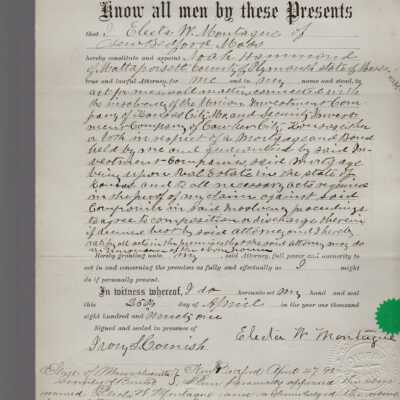 Know all men by these Presents
that I Electa W. Montague of
New Bedford Mass
hereby constitute and appoint Noah Hammond
of Mattapoisett County of Plymouth State of Mass
true and lawful Attorney for me and in my name and stead, to
act for me in all matters connected with
the insolvency of the Union Investment Com
pany of Kansas City Mo and Security Invest
ment Company of Cawker City Kansas
both in respect of a Mortgage and Bond
held by me and guaranteed by said In
vestment Companies, said Mortgage
being upon Real Estate in the State of
Kansas and to all necessary acts required
in the proof of my claim against said
Companies in said Insolvency proceedings
to agree to composition or discharge therein
if deemed best by said attorney and I hereby
ratify all acts in the premises that the said attorney may do
in pursuance of the
Hereby granting unto my said Attorney, full power and authority to
act in and concerning the premises as fully and effectually as I might
do if personally present.
In witness whereof, I do hereunto set my hand and seal
this 25th day of April in the year one thousand
eight hundred and ninety one
Signed and sealed in presence of
Electa W Montague
Cornish
State of Massachusetts New Bedford April 27 91
County of Bristol Then Personally appeared the above
named Electa W Montague and acknowledged the